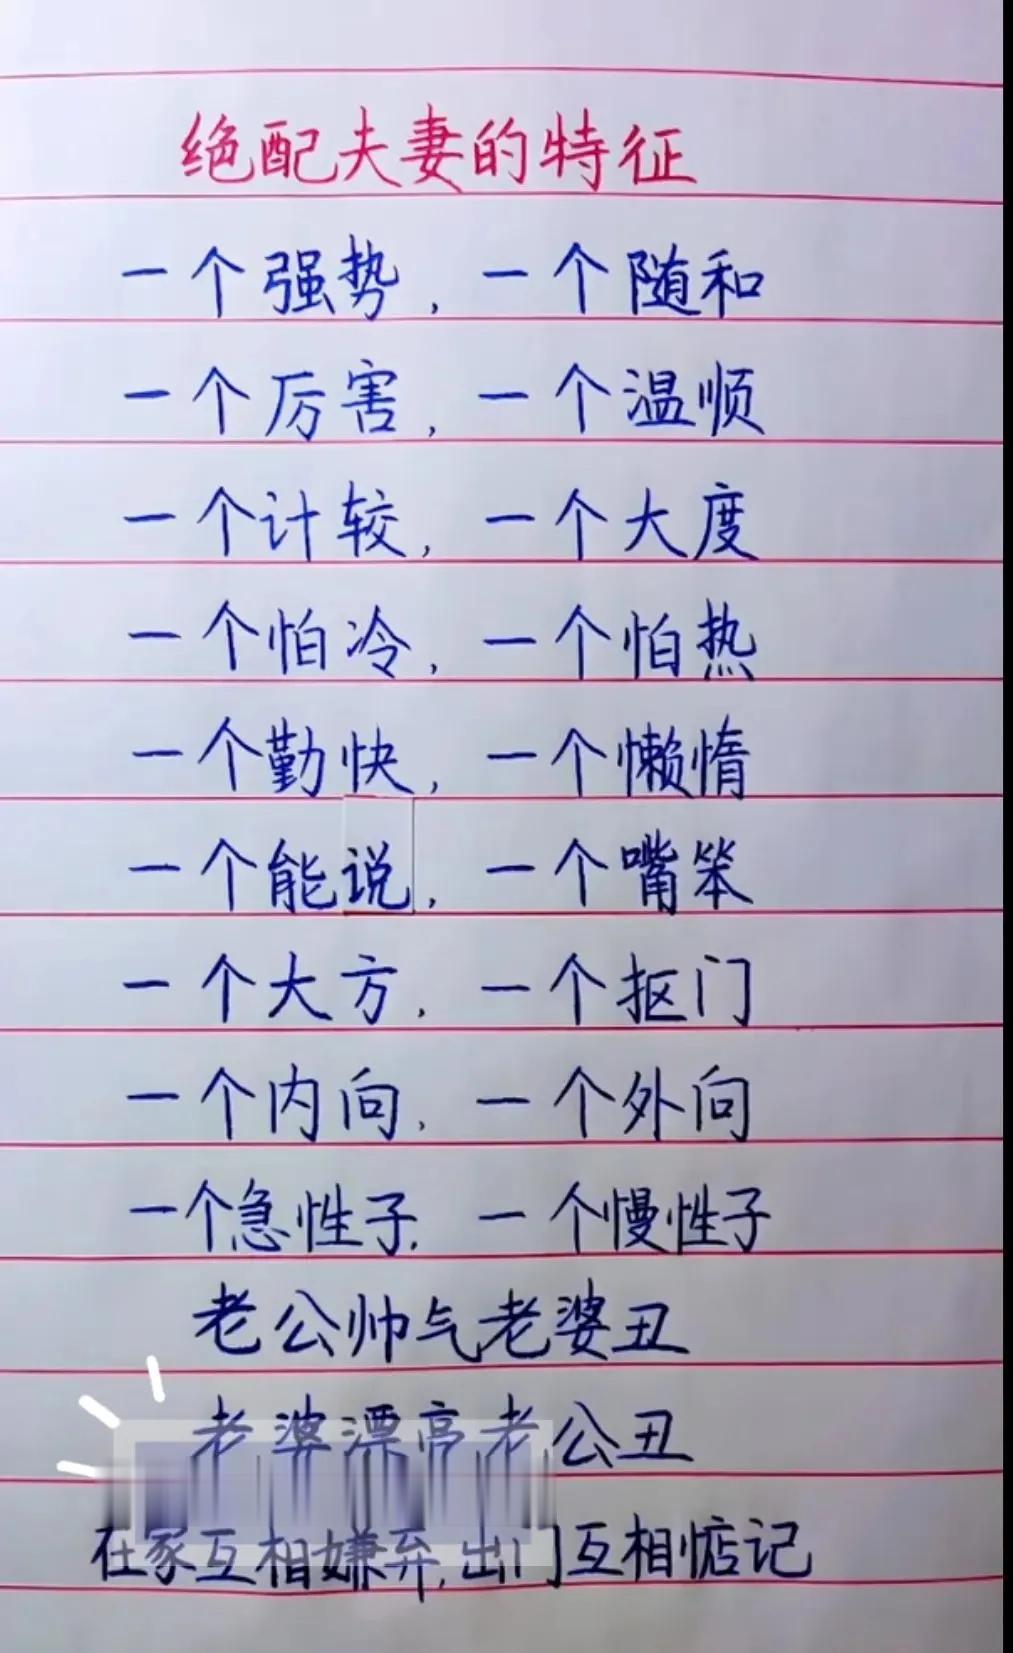 绝配夫妻的特征
一个强势,一个随和
一个厉害,一个温顺
一个计较,一个大度
一个怕冷,一个怕热
一个勤快,一个懒惰
一个能说,一个嘴笨
一个大方,一个抠门
一个内向,一个外向
一个急性子,一个慢性子
老公帅气老婆丑
老婆漂亮老公丑
在家互相嫌弃,出门互相惦记